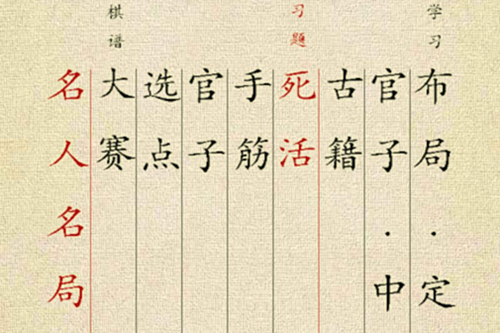 学习
布局·定
官子·中
古籍
习题
死活
手筋
官子
选点
棋谱
大赛
名人名局